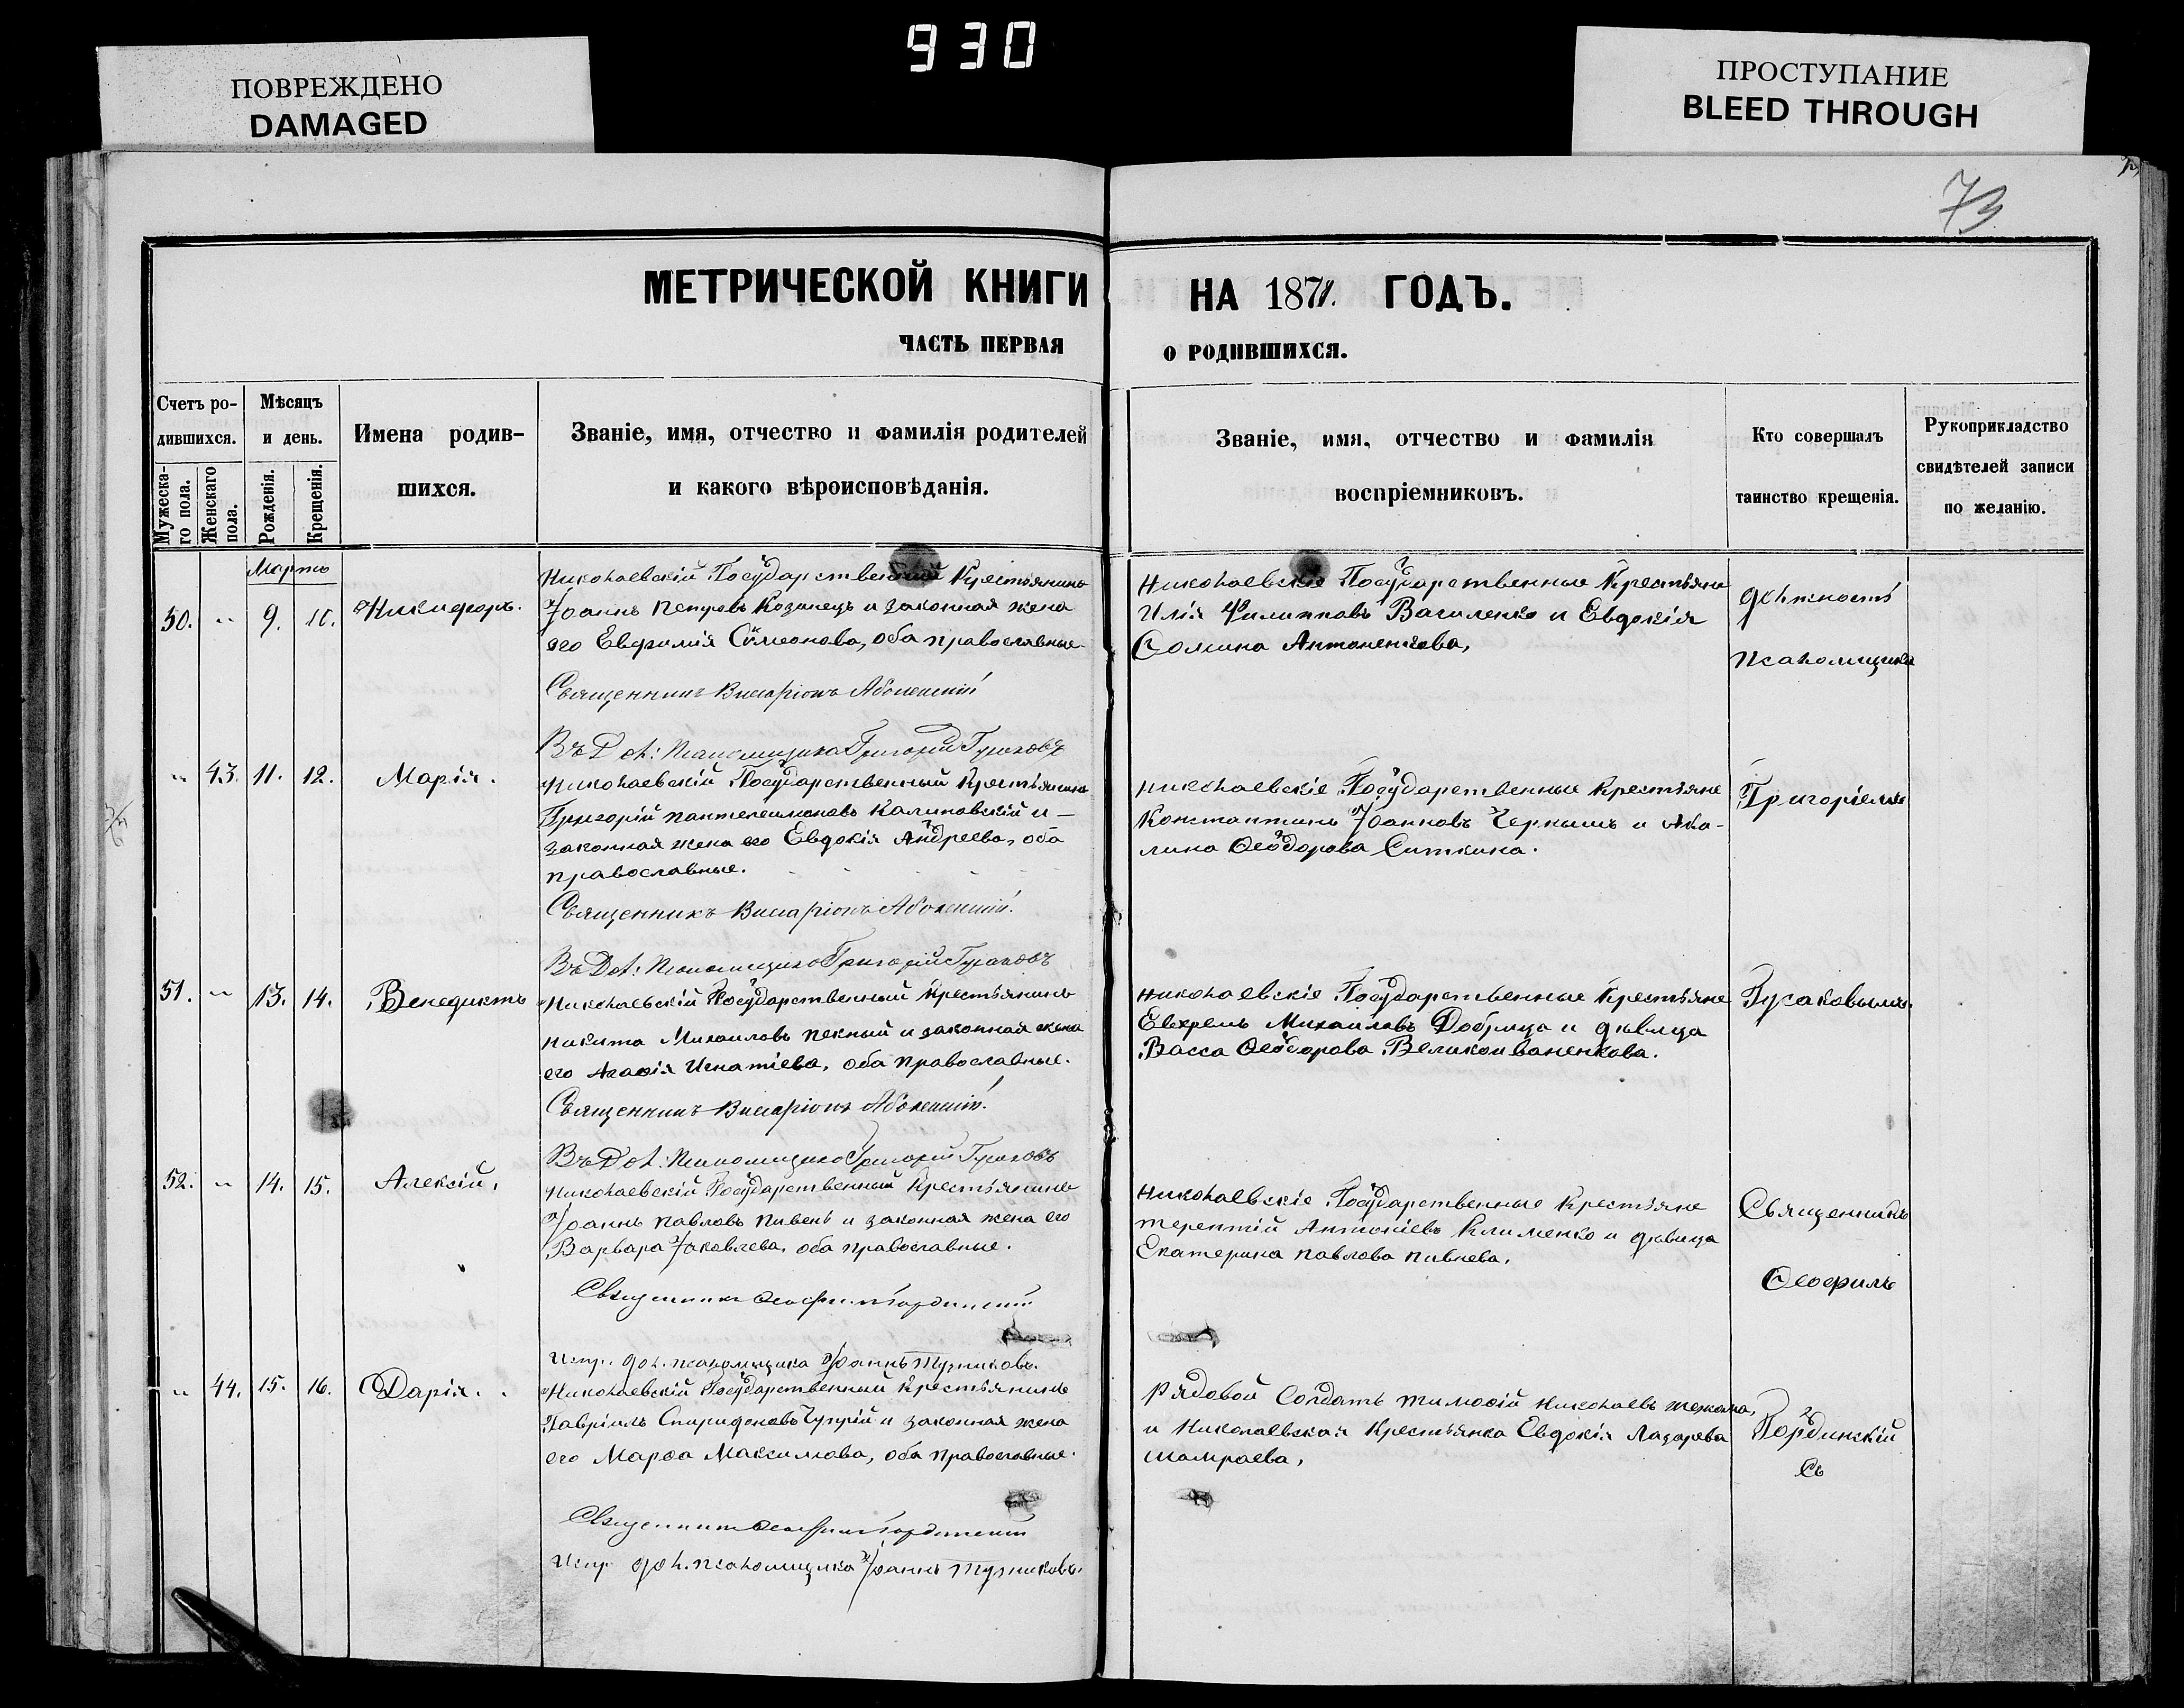 930
ПОВРЕЖДЕНО
DAMAGED
ПРОСТУПАНИЕ
BLEED THROUGH
73
МЕТРИЧЕСКОЙ КНИГИ НА 1871. ГОДЪ.
ЧАСТЬ ПЕРВАЯ О РОДИВШИХСЯ.
Счетъ ро-
дившихся.
Мужеска-
го пола.
Женскаго
пола.
Мѣсяцъ
и день.
Рожденія.
Крещенія.
Имена родив-
шихся.
Званіе, имя, отчество и фамилія родителей
и какого вѣроисповѣданія.
Званіе, имя, отчество и фамилія
воспріемниковъ.
Кто совершалъ
таинство крещенія.
Рукоприкладство
свидѣтелей записи
по желанію.
Мартъ
50. " 9. Никифоръ.
Николаевскій Государственный Крестьянинъ
Іоаннъ Петровъ Козинецъ и законная жена
его Евфимія Сѵмеонова, оба православные.
Священникъ Виссаріонъ
Николаевскіе Государственные Крестьяне
Илія Филипповъ Василенко и Евдокія
Антоненкова,
должность
псаломщика
Въ Дол: Псаломщика Григорій Гусаковъ
" 43. 11. 12. Марія.
Николаевскій Государственный Крестьянинъ
Григорій Пантелеимоновъ Калиновскій и
законная жена его Евдокія Андреева, оба
православные.
Священникъ Виссаріонъ
Николаевскіе Государственные Крестьяне
Константинъ Іоанновъ Чернышъ и Аку-
лина Ѳеодорова Ситкина.
Григоріемъ
Въ Дол: Псаломщика Григорій Гусаковъ
51. " 13. 14. Венедиктъ
Николаевскій Государственный Крестьянинъ
Никита Михаиловъ Пекный и законная жена
его Агаѳія Игнатіева, оба православные.
Священникъ Виссаріонъ
Николаевскіе Государственные Крестьяне
Евфремъ Михаиловъ Добрица и дѣвица
Васса Ѳеодорова Великоиваненкова.
Гусаковымъ.
Въ Дол: Псаломщика Григорій Гусаковъ
52. " 14. 15. Алексій,
Николаевскій Государственный Крестьянинъ
Іоаннъ Павловъ Пивень и законная жена его
Варвара Іаковлева, оба православные.
Священникъ Ѳеофилъ Гординскій
Николаевскіе Государственные Крестьяне
Терентій Антоніевъ Клименко и дѣвица
Екатерина Павлова Пивнева,
Священникъ
Ѳеофилъ
Испр. дол. псаломщика Іоаннъ
" 44. 15. 16. Дарія.
Николаевскій Государственный Крестьянинъ
Гавріилъ Спиридоновъ Чуприй и законная жена
его Марѳа Максимова, оба православные.
Рядовой Солдатъ Тимоѳій Николаевъ
и Николаевская Крестьянка Евдокія Лазарева
Шамраева,
Гординскій
Съ
Священникъ Ѳеофилъ Гординскій
Испр. дол. псаломщика Іоаннъ